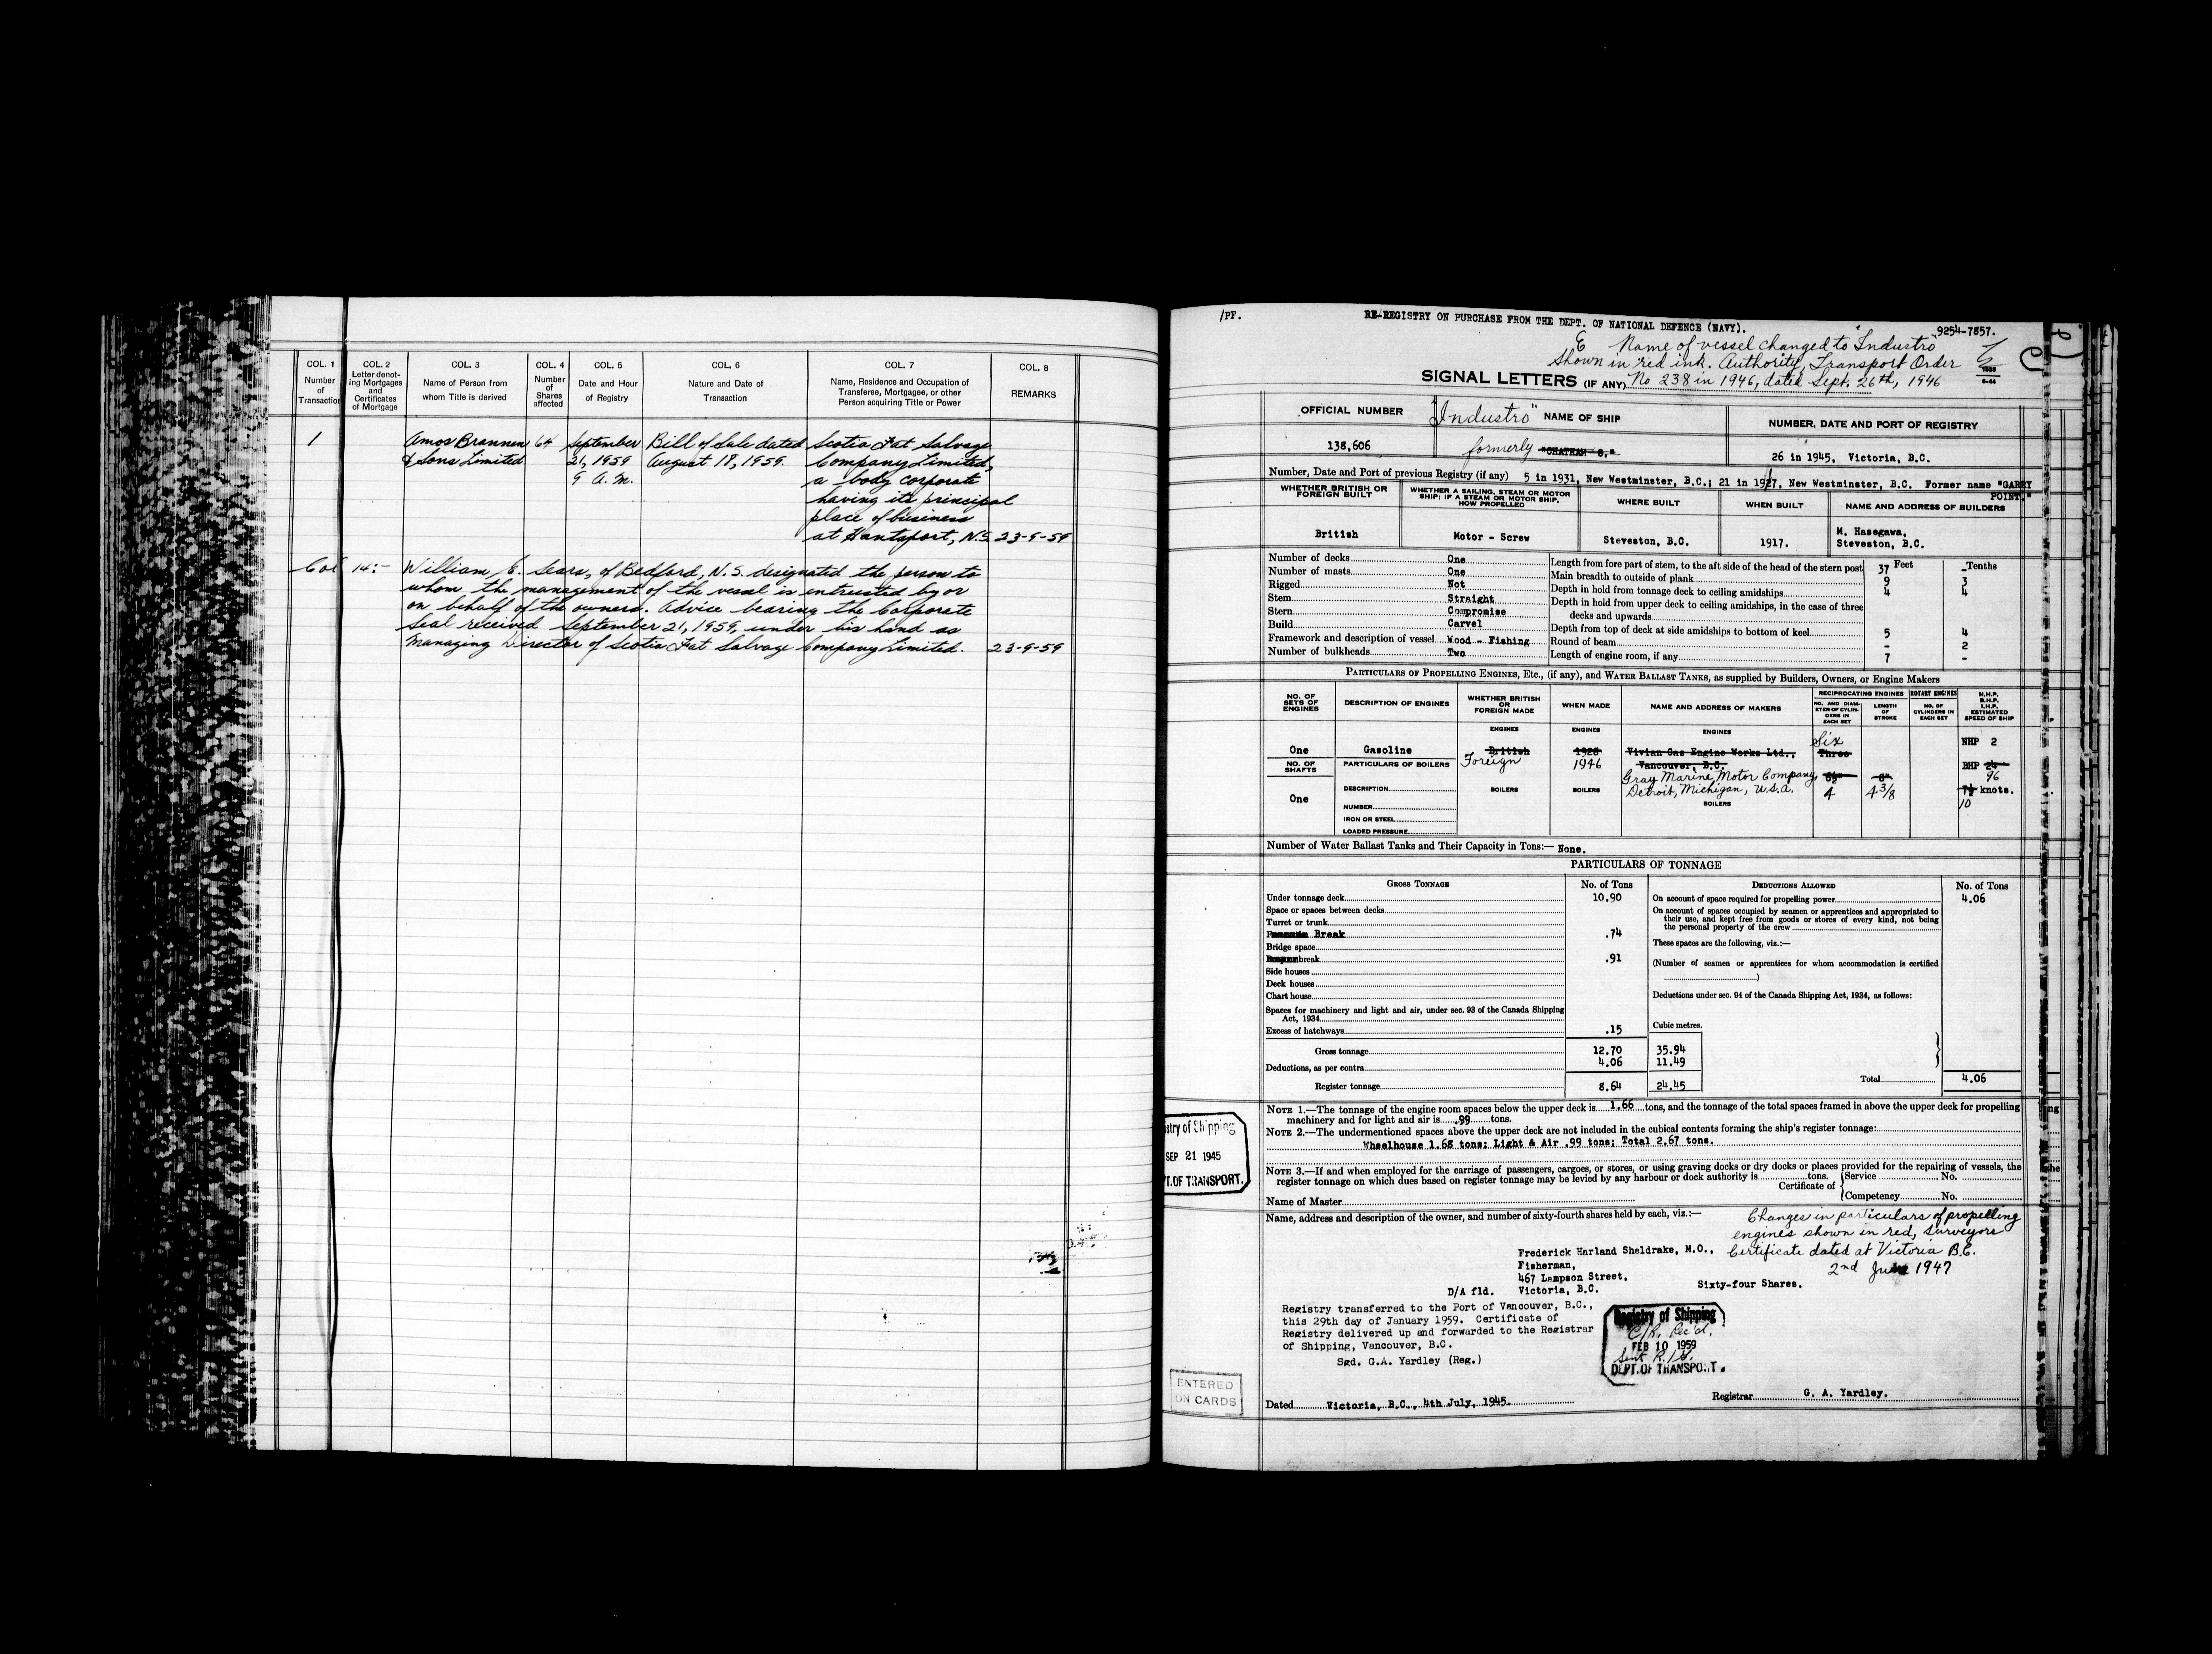 COL. 1 COL. 2 COL. 3 COL. 4 COL. 5 COL. 6 COL. 7 COL. 8
Number of Transaction
Letter denoting Mortgages and Certificates of Mortgage
Name of Person from whom Title is derived
Number of Shares affected
Date and Hour of Registry
Nature and Date of Transaction
Name, Residence and Occupation of Transferee, Mortgagee, or other Person acquiring Title or Power
REMARKS
1 Amos Brannen 64 September Bill of Sale dated Scotia Fat Salvage
& Sons Limited 21, 1959 August 18, 1959. Company Limited,
9 A.M. a body corporate
having its principal
place of business
at Hantsport, N.S. 23-9-59
Col 14:- William E. Sears, of Bedford, N.S. designated the person to
whom the management of the vessel is entrusted by or
on behalf of the owners. Advice bearing the Corporate
Seal received September 21, 1959, under his hand as
Managing Director of Scotia Fat Salvage Company Limited. 23-9-59
/PF. RE-REGISTRY ON PURCHASE FROM THE DEPT. OF NATIONAL DEFENCE (NAVY). 9254-7857.
E Name of vessel changed to "Industro"
shown in red ink. Authority, Transport Order
SIGNAL LETTERS (IF ANY) No 238 in 1946, dated Sept. 26th, 1946
OFFICIAL NUMBER "Industro" NAME OF SHIP NUMBER, DATE AND PORT OF REGISTRY
138,606 formerly "CHATHAM S." 26 in 1945, Victoria, B.C.
Number, Date and Port of previous Registry (if any) 5 in 1931, New Westminster, B.C.; 21 in 1927, New Westminster, B.C. Former name "GARRY
POINT."
WHETHER BRITISH OR FOREIGN BUILT
WHETHER A SAILING, STEAM OR MOTOR SHIP; IF A STEAM OR MOTOR SHIP, HOW PROPELLED
WHERE BUILT
WHEN BUILT
NAME AND ADDRESS OF BUILDERS
British Motor - Screw Steveston, B.C. 1917. M. Hasegawa,
Steveston, B.C.
Number of decks One
Number of masts One
Rigged Not
Stem Straight
Stern Compromise
Build Carvel
Framework and description of vessel Wood - Fishing
Number of bulkheads Two
Feet Tenths
Length from fore part of stem, to the aft side of the head of the stern post 37 -
Main breadth to outside of plank 9 3
Depth in hold from tonnage deck to ceiling amidships 4 4
Depth in hold from upper deck to ceiling amidships, in the case of three
decks and upwards
Depth from top of deck at side amidships to bottom of keel 5 4
Round of beam - 2
Length of engine room, if any 7 -
PARTICULARS OF PROPELLING ENGINES, ETC., (if any), and WATER BALLAST TANKS, as supplied by Builders, Owners, or Engine Makers
NO. OF SETS OF ENGINES
DESCRIPTION OF ENGINES
WHETHER BRITISH OR FOREIGN MADE
WHEN MADE
NAME AND ADDRESS OF MAKERS
RECIPROCATING ENGINES
NO. AND DIAMETER OF CYLINDERS IN EACH SET
LENGTH OF STROKE
ROTARY ENGINES
NO. OF CYLINDERS IN EACH SET
N.H.P. B.H.P. I.H.P. ESTIMATED SPEED OF SHIP
ENGINES ENGINES ENGINES
Six NHP 2
One Gasoline British 1928 Vivian Gas Engine Works Ltd., Three
NO. OF SHAFTS PARTICULARS OF BOILERS Foreign 1946 Vancouver, B.C. BHP 24
Gray Marine Motor Company, 6½" 8" 96
DESCRIPTION BOILERS BOILERS Detroit, Michigan, U.S.A. 4 4 3/8 7½ knots.
One NUMBER BOILERS 10
IRON OR STEEL
LOADED PRESSURE
Number of Water Ballast Tanks and Their Capacity in Tons:— None.
PARTICULARS OF TONNAGE
GROSS TONNAGE No. of Tons DEDUCTIONS ALLOWED No. of Tons
Under tonnage deck 10.90 On account of space required for propelling power 4.06
Space or spaces between decks
Turret or trunk
Break .74
Bridge space
break .91
Side houses
Deck houses
Chart house
Spaces for machinery and light and air, under sec. 93 of the Canada Shipping
Act, 1934
Excess of hatchways .15
On account of spaces occupied by seamen or apprentices and appropriated to
their use, and kept free from goods or stores of every kind, not being
the personal property of the crew
These spaces are the following, viz.:—
(Number of seamen or apprentices for whom accommodation is certified
)
Deductions under sec. 94 of the Canada Shipping Act, 1934, as follows:
Cubic metres.
Gross tonnage 12.70 35.94
Deductions, as per contra 4.06 11.49
Register tonnage 8.64 24.45 Total 4.06
NOTE 1.—The tonnage of the engine room spaces below the upper deck is 1.66 tons, and the tonnage of the total spaces framed in above the upper deck for propelling
machinery and for light and air is .99 tons.
NOTE 2.—The undermentioned spaces above the upper deck are not included in the cubical contents forming the ship's register tonnage:
Wheelhouse 1.68 tons; Light & Air .99 tons; Total 2.67 tons.
NOTE 3.—If and when employed for the carriage of passengers, cargoes, or stores, or using graving docks or dry docks or places provided for the repairing of vessels, the
register tonnage on which dues based on register tonnage may be levied by any harbour or dock authority is tons.
Certificate of Service No.
Competency No.
Name of Master
istry of Shipping
SEP 21 1945
PT. OF TRANSPORT.
Name, address and description of the owner, and number of sixty-fourth shares held by each, viz.:—
Changes in particulars of propelling
engines shown in red, Surveyors
Certificate dated at Victoria B.C.
2nd June 1947
Frederick Harland Sheldrake, M.O.,
Fisherman,
467 Lampson Street,
D/A fld. Victoria, B.C. Sixty-four Shares.
Registry transferred to the Port of Vancouver, B.C.,
this 29th day of January 1959. Certificate of
Registry delivered up and forwarded to the Registrar
of Shipping, Vancouver, B.C.
Sgd. G.A. Yardley (Reg.)
Registry of Shipping
C/R. Rec'd.
FEB 10 1959
DEPT. OF TRANSPORT.
ENTERED
ON CARDS
Dated Victoria, B.C., 4th July, 1945. Registrar G. A. Yardley.